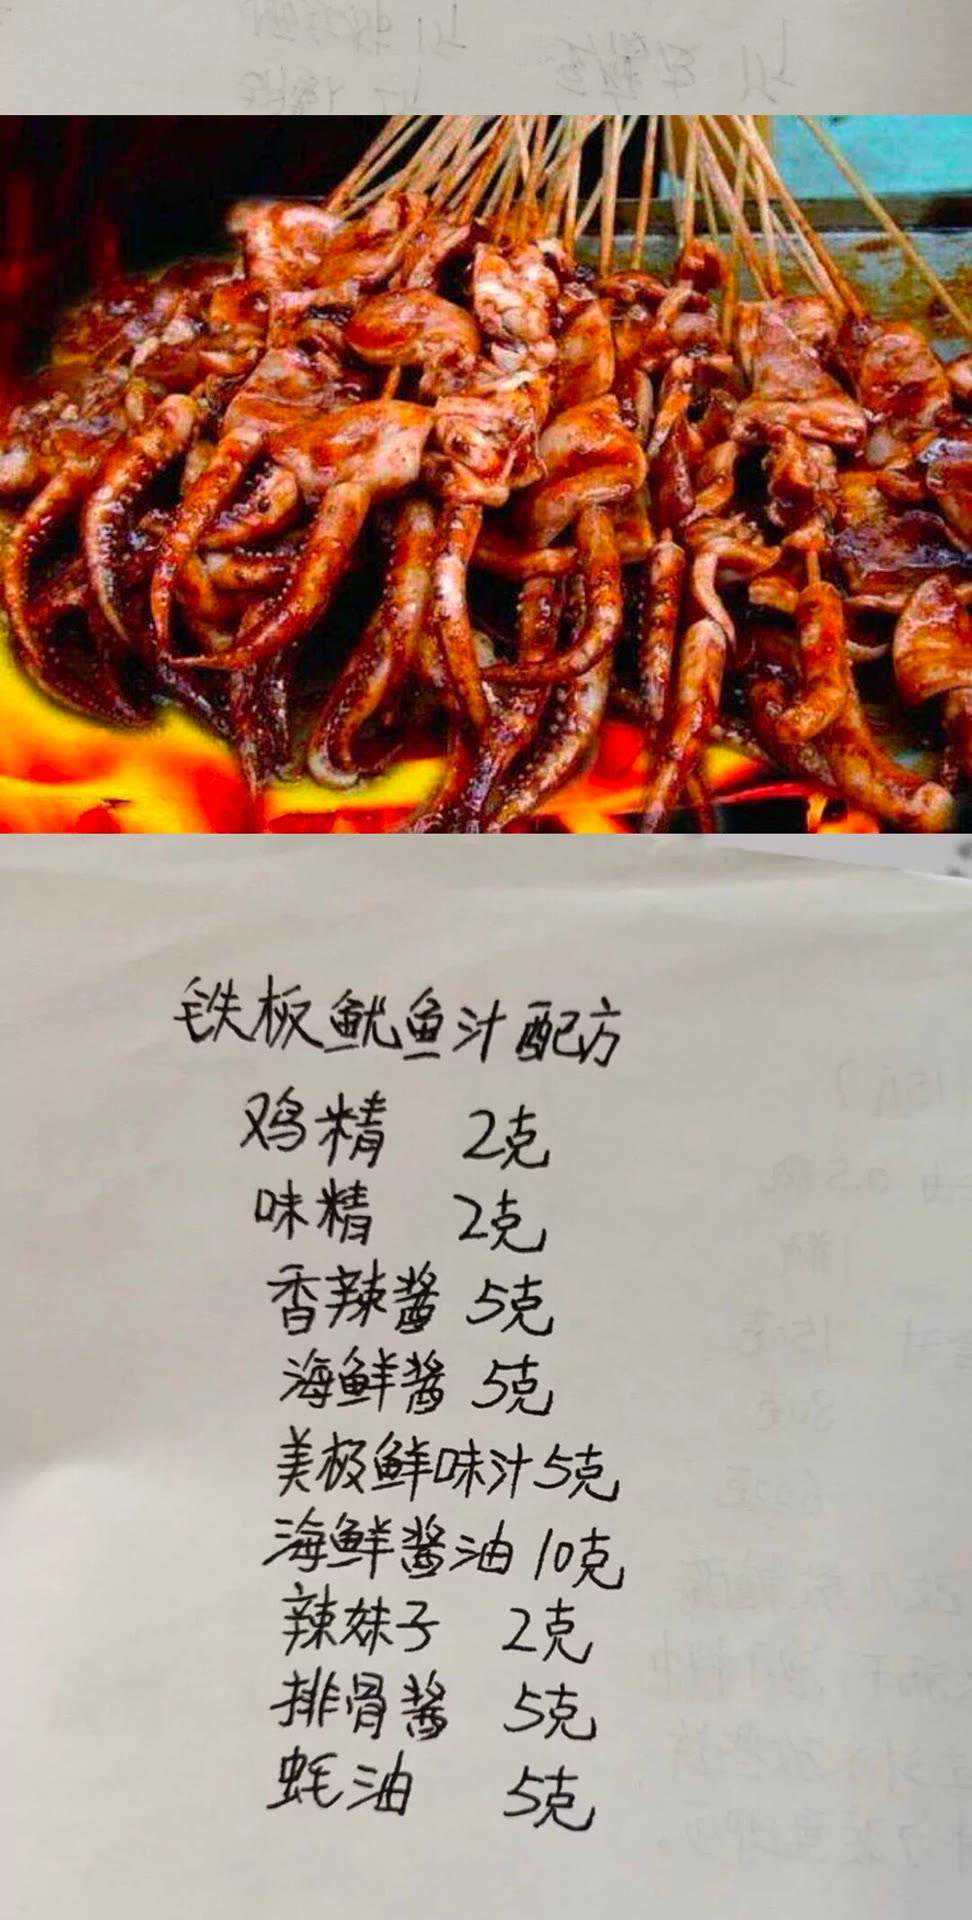 铁板鱿鱼汁配方
鸡精 2克
味精 2克
香辣酱 5克
海鲜酱 5克
美极鲜味汁 5克
海鲜酱油 10克
辣妹子 2克
排骨酱 5克
蚝油 5克